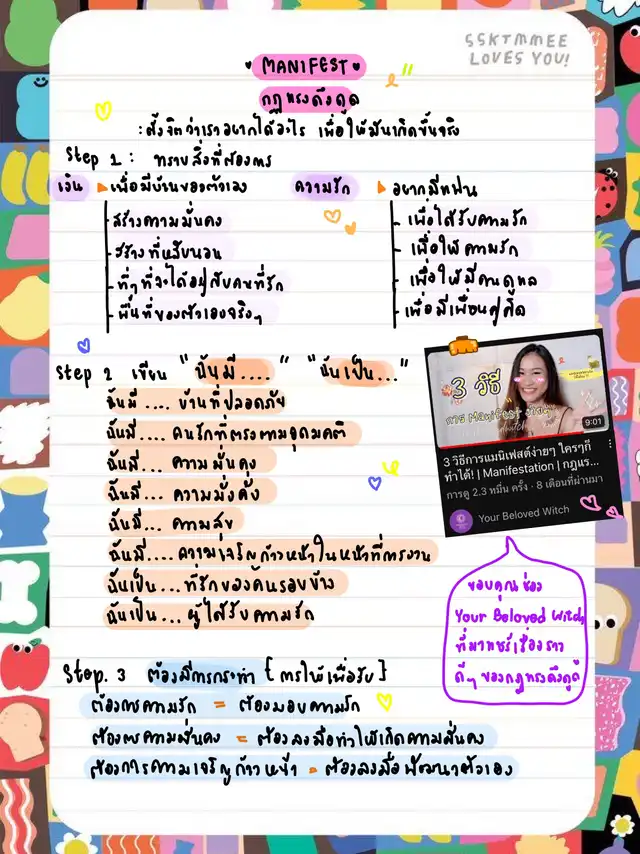 SSKTMMEE
LOVES YOU!
MANIFEST
กฎแรงดึงดูด
:ตั้งจิตว่าเราอยากได้อะไร เพื่อให้มันเกิดขึ้นจริง
Step 1 : ทราบสิ่งที่ต้องการ
เงิน เพื่อมีบ้านของตัวเอง
- สร้างความมั่นคง
- สร้างที่หลับนอน
- ที่ๆที่จะได้อยู่กับคนที่รัก
- พื้นที่ของตัวเองจริงๆ
ความรัก อยากมีแฟน
- เพื่อได้รับความรัก
- เพื่อให้ความรัก
- เพื่อให้มีคนดูแล
- เพื่อมีเพื่อนคู่คิด
Step 2 เขียน "ฉันมี...." "ฉันเป็น..."
ฉันมี .... บ้านที่ปลอดภัย
ฉันมี.... คนรักที่ตรงตามอุดมคติ
ฉันมี... ความมั่นคง
ฉันมี... ความมั่งคั่ง
ฉันมี... ความสุข
ฉันมี.... ความเจริญก้าวหน้าในหน้าที่การงาน
ฉันเป็น... ที่รักของคนรอบข้าง
ฉันเป็น... ผู้ได้รับความรัก
3 วิธี
การ Manifest ง่ายๆ
9:01
3 วิธีการแมนิเฟสต์ง่ายๆ ใครๆก็
ทำได้! | Manifestation | กฎแร...
การดู 2.3 หมื่น ครั้ง · 8 เดือนที่ผ่านมา
Your Beloved Witch
ขอบคุณช่อง
Your Beloved Witch
ที่มาแชร์เรื่องราว
ดีๆ ของกฎแรงดึงดูด
Step. 3 ต้องมีการกระทำ [การให้เพื่อรับ]
ต้องการความรัก = ต้องมอบความรัก
ต้องการความมั่นคง = ต้องลงมือทำให้เกิดความมั่นคง
ต้องการความเจริญก้าวหน้า = ต้องลงมือพัฒนาตัวเอง